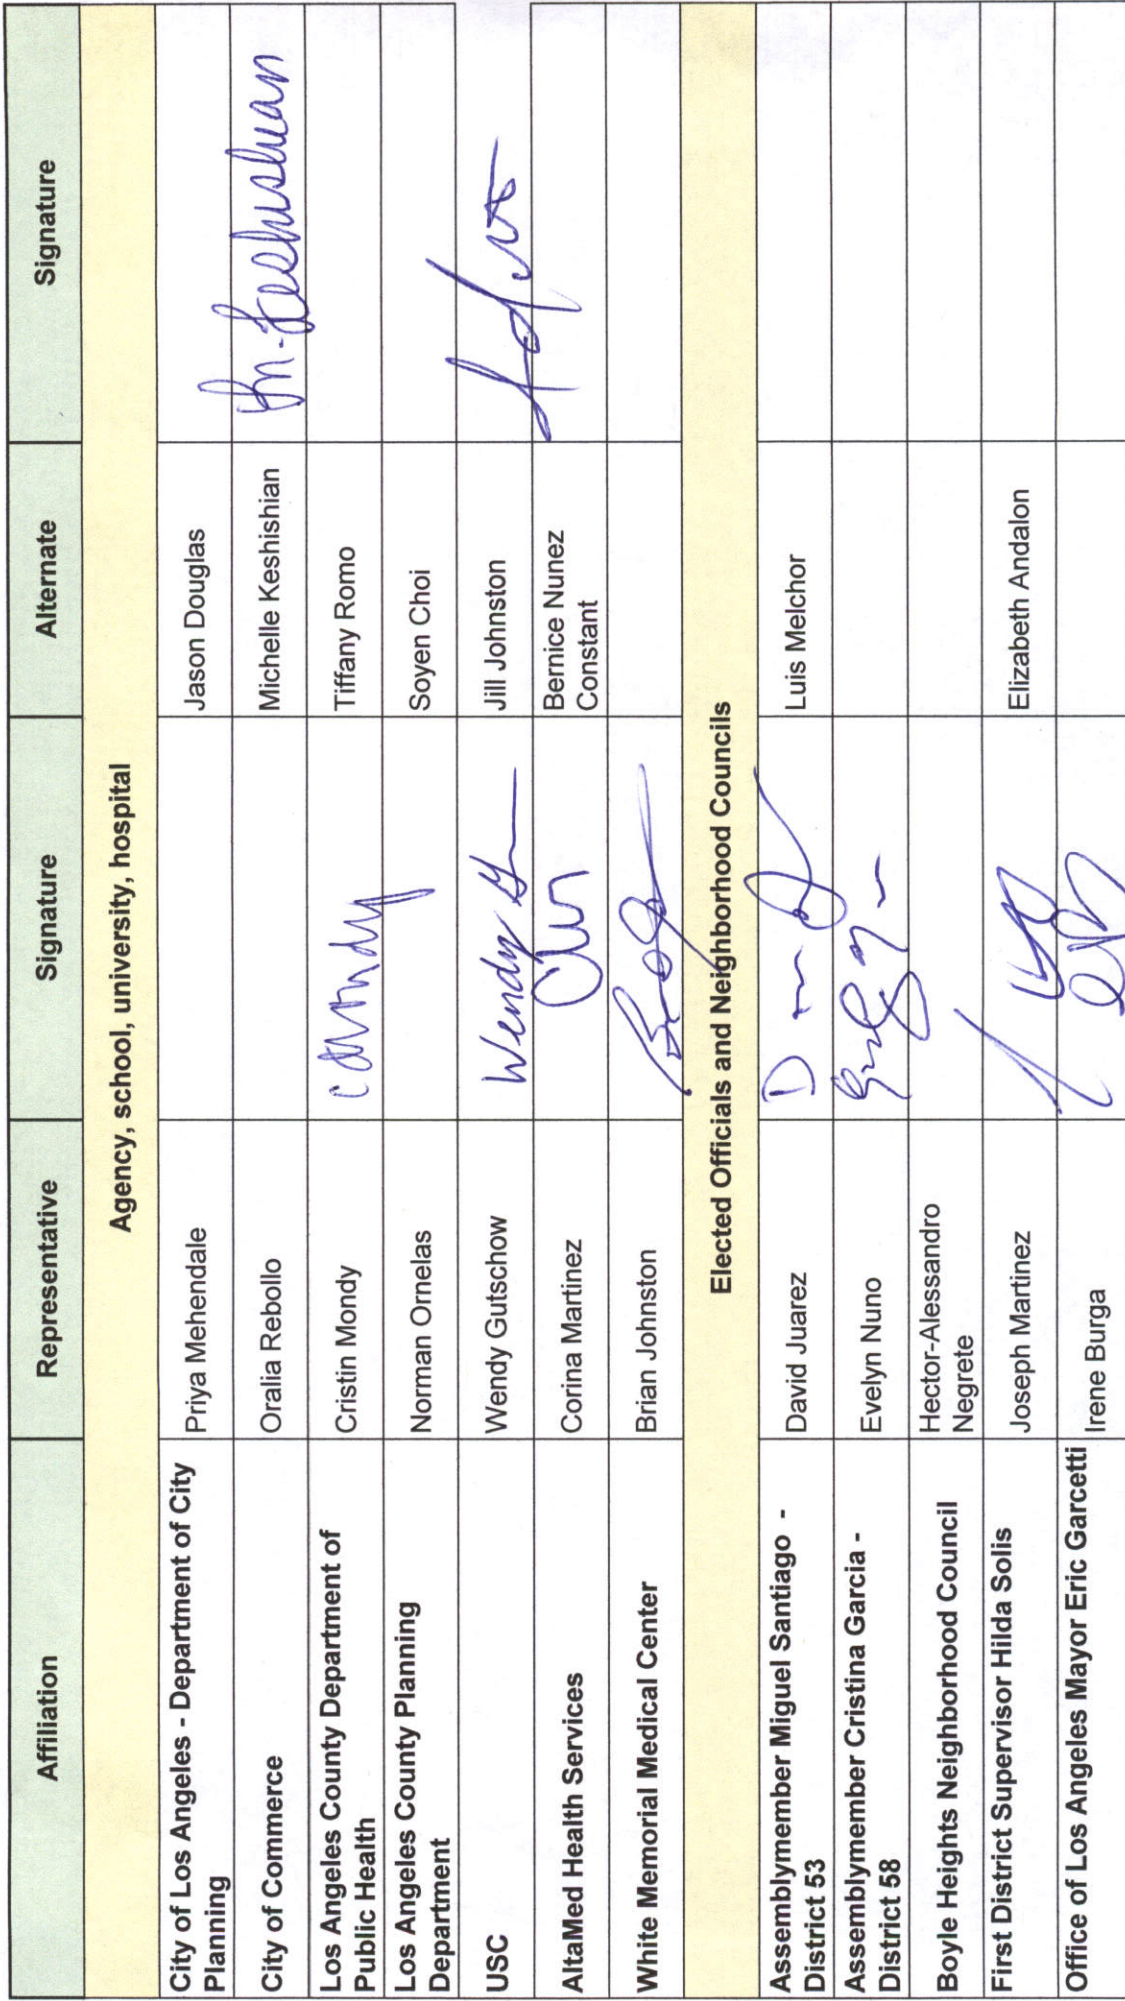 Affiliation Representative Signature Alternate Signature
Agency, school, university, hospital
City of Los Angeles - Department of City Planning Priya Mehendale Jason Douglas
City of Commerce Oralia Rebollo Michelle Keshishian
Los Angeles County Department of Public Health Cristin Mondy Tiffany Romo
Los Angeles County Planning Department Norman Ornelas Soyen Choi
USC Wendy Gutschow Wendy Jill Johnston
AltaMed Health Services Corina Martinez Bernice Nunez Constant
White Memorial Medical Center Brian Johnston
Elected Officials and Neighborhood Councils
Assemblymember Miguel Santiago - District 53 David Juarez Luis Melchor
Assemblymember Cristina Garcia - District 58 Evelyn Nuno
Boyle Heights Neighborhood Council Hector-Alessandro Negrete
First District Supervisor Hilda Solis Joseph Martinez Elizabeth Andalon
Office of Los Angeles Mayor Eric Garcetti Irene Burga